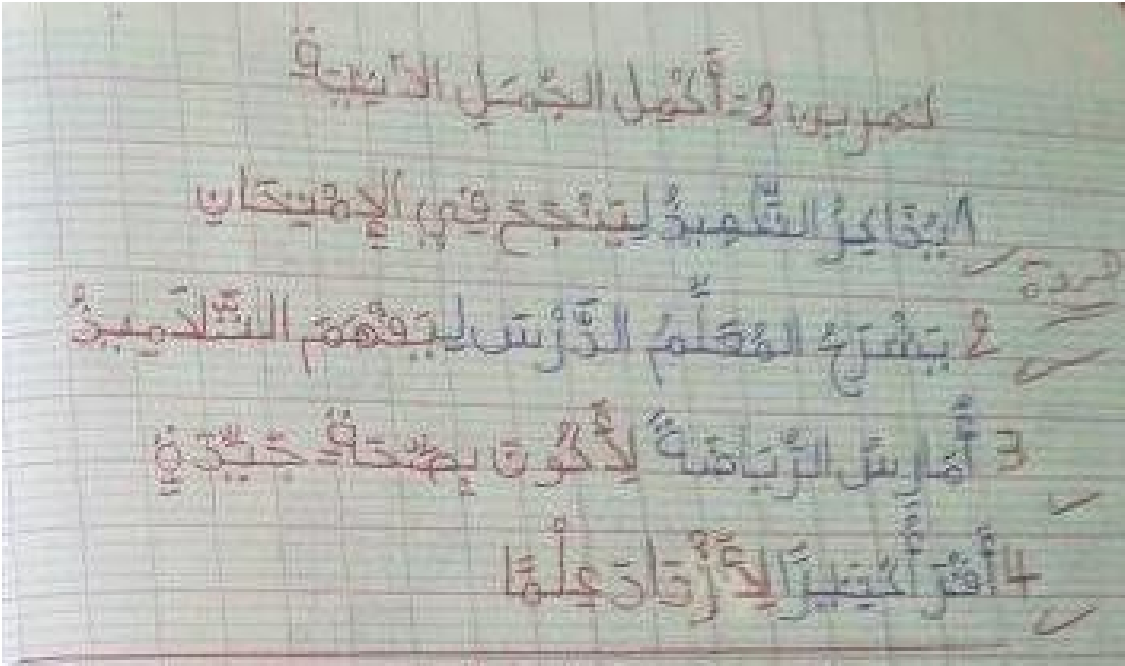 تمرين 2- أُكْمِل الجُمَل الآتِيَة
1 يُذَاكِرُ التِّلْمِيذُ لِيَنْجَحَ فِي الإِمْتِحَانِ
2 يَشْرَحُ المُعَلِّمُ الدَّرْسَ لِيَفْهَمَ التِّلْمِيذُ
3 أُمَارِسُ الرِّيَاضَةَ لِأَكُونَ بِصِحَّةٍ جَيِّدَةٍ
4 أَقْرَأُ كَثِيرًا لِأَزْدَادَ عِلْمًا